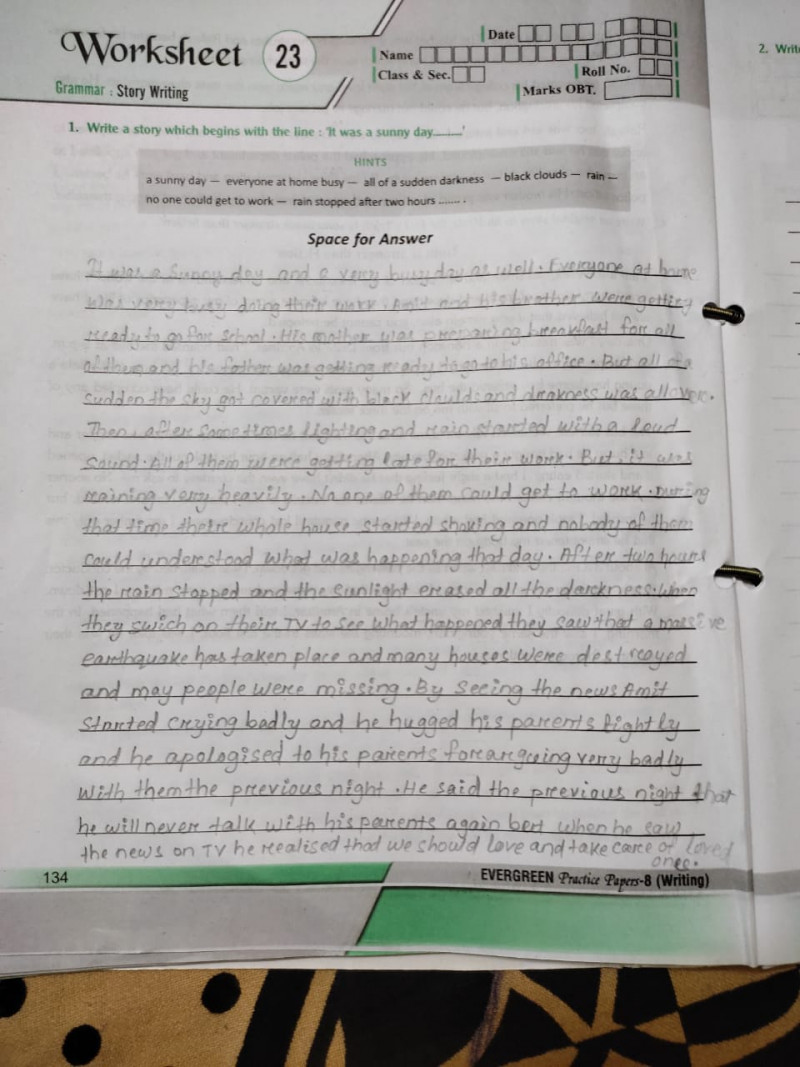 Worksheet 23
Date
Name
Class & Sec.
Roll No.
Marks OBT.
Grammar : Story Writing
2. Write
1. Write a story which begins with the line : 'It was a sunny day.........'
HINTS
a sunny day — everyone at home busy — all of a sudden darkness — black clouds — rain —
no one could get to work — rain stopped after two hours ....... .
Space for Answer
It was a Sunny day and a very busy day as well. Everyone at home
was very busy doing their work. Amit and his brother were getting
ready to go for school. His mother was preparing breakfast for all
of them and his father was getting ready to go to his office. But all of a
sudden the sky got covered with black clouds and drakness was all over.
Then, after sometimes lighting and rain started with a loud
sound. All of them were getting late for their work. But, it was
raining very heavily. No one of them could get to work. During
that time their whole house started shaking and nobody of them
could understood what was happening that day. After two hours
the rain stopped and the sunlight erased all the darkness. When
they swich on their TV to see what happened they saw that a massive
earthquake has taken place and many houses were destroyed
and may people were missing. By seeing the news Amit
started crying badly and he hugged his parents tightly
and he apologised to his parents for argueing very badly
with them the previous night. He said the previous night that
he will never talk with his parents again but when he saw
the news on TV he realised that we should love and take care of loved
ones.
134
EVERGREEN Practice Papers-8 (Writing)